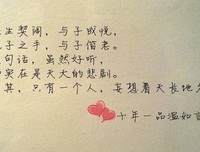 生契阔，与子成悦。
子之手，与子偕老。
句话，虽然好听，
实在是天大的悲剧。
其，只有一个人，妄想着天长地
十年一品温如言